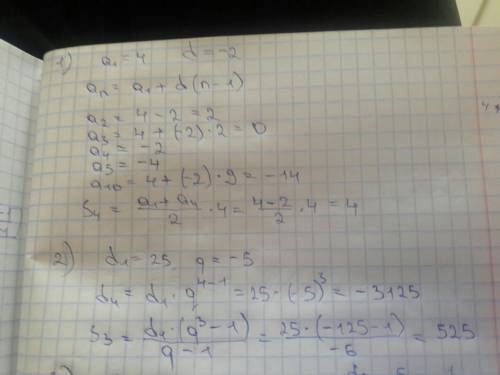 1) a₁ = 4 d = -2
aₙ = a₁ + d(n-1)
a₂ = 4 - 2 = 2
a₃ = 4 + (-2)·2 = 0
a₄ = -2
a₅ = -4
a₁₀ = 4 + (-2)·9 = -14
S₄ = (a₁ + a₄)/2 · 4 = (4-2)/2 · 4 = 4
2) b₁ = 25, q = -5
b₄ = b₁ · q⁴⁻¹ = 25·(-5)³ = -3125
S₃ = b₁·(q³-1)/(q-1) = 25·(-125-1)/(-6) = 525